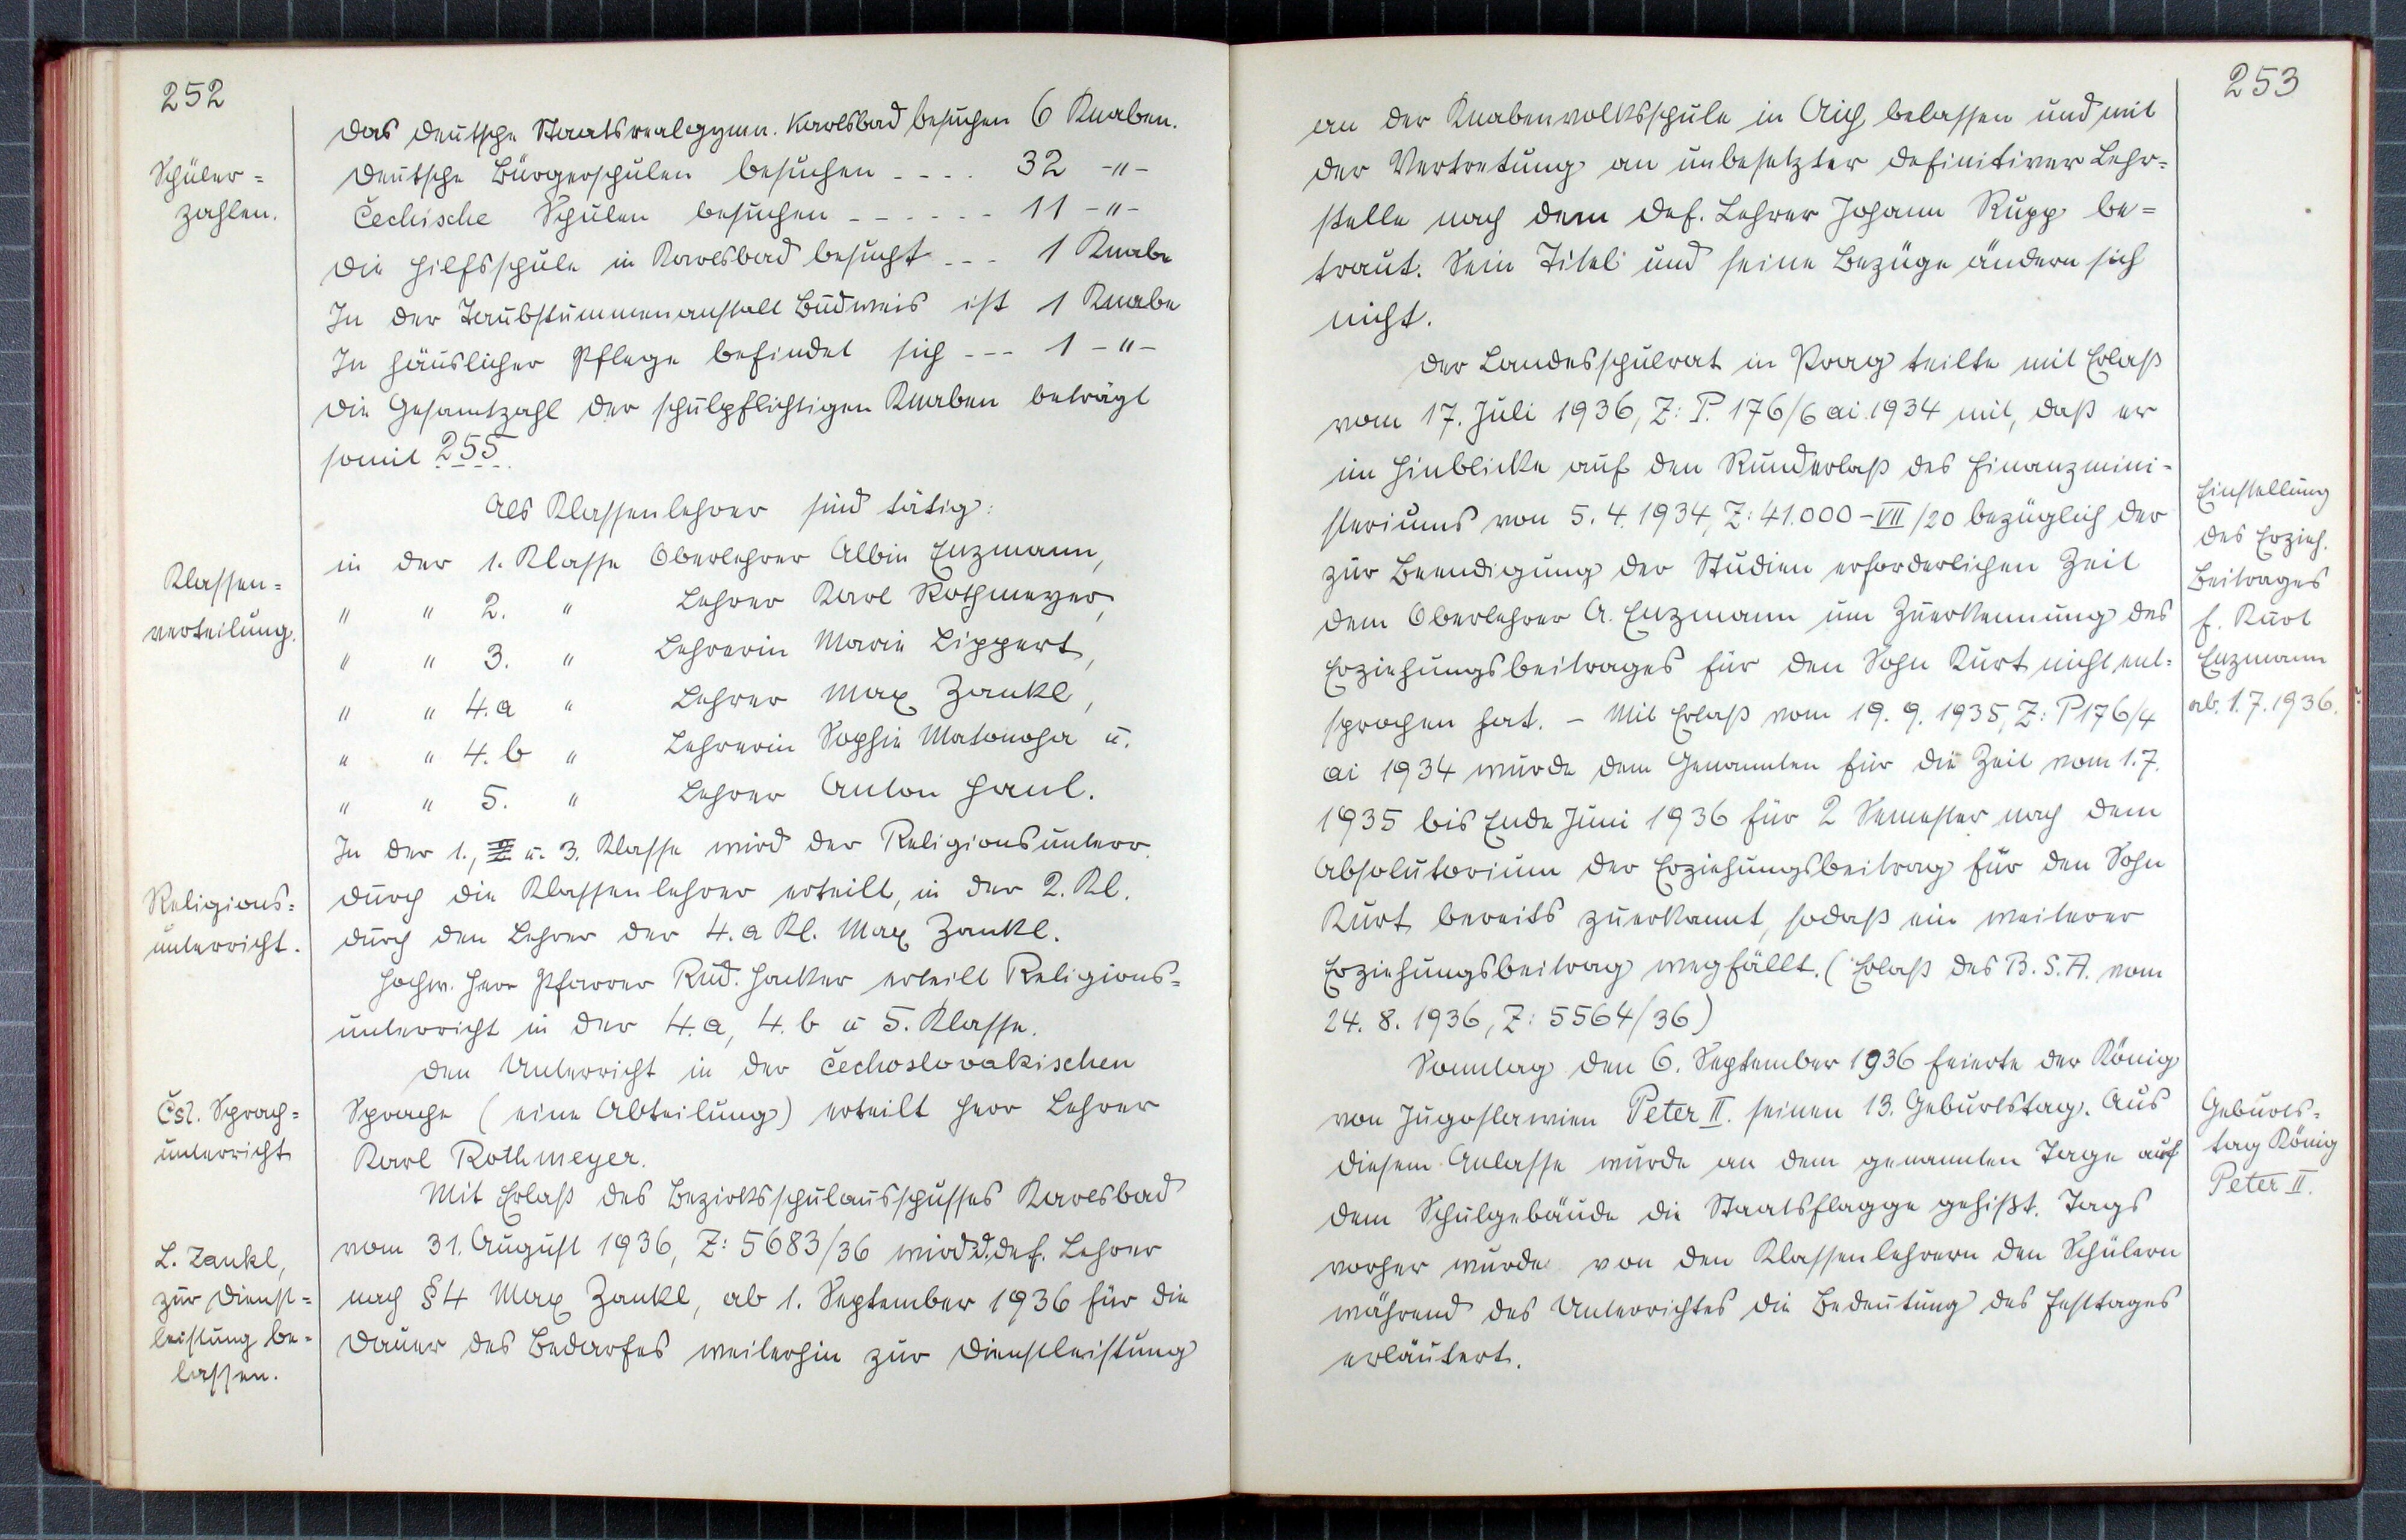 252
Schüler=
zahlen.
Das deutsche Staatsrealgymn. Karlsbad besuchen 6 Knaben.
Deutsche Bürgerschulen besuchen - - - . 32 -"-
Čechische Schulen besuchen - - - - - - 11 -"-
Die Hilfsschule in Karlsbad besucht - - - 1 Knabe
In der Taubstummenanstalt Budweis ist 1 Knabe
In häuslicher Pflege befindet sich - - - 1 -"-
Die Gesamtzahl der schulpflichtigen Knaben beträgt
somit 255.
Als Klassenlehrer sind tätig:
Klassen=
verteilung.
in der 1. Klasse Oberlehrer Albin Enzmann,
" " 2. " Lehrer Karl Rothmeyer,
" " 3. " Lehrerin Marie Lippert,
" " 4.a " Lehrer Max Zankl,
" " 4.b " Lehrerin Sophie Matonoha u.
" " 5. " Lehrer Anton Hanl.
In der 1., u. 3. Klasse wird der Religionsunterr.
Religions=
unterricht.
durch die Klassenlehrer erteilt, in der 2. Kl.
durch den Lehrer der 4.a Kl. Max Zankl.
Hochw. Herr Pfarrer Rud. Hacker erteilt Religions=
unterricht in der 4.a, 4.b u 5. Klasse.
Den Unterricht in der čechoslovakischen
Čsl. Sprach=
unterricht
Sprache (eine Abteilung) erteilt Herr Lehrer
Karl Rothmeyer.
Mit Erlaß des Bezirksschulausschusses Karlsbad
L. Zankl,
zur Dienst=
leistung be=
lassen.
vom 31. August 1936, Z: 5683/36 wird d. def. Lehrer
nach §4 Max Zankl, ab 1. September 1936 für die
Dauer des Bedarfes weiterhin zur Dienstleistung
253
an der Knabenvolksschule in Aich belassen und mit
der Vertretung an unbesetzter definitiver Lehr=
stelle nach dem def. Lehrer Johann Rupp be=
traut. Sein Titel und seine Bezüge ändern sich
nicht.
Der Landesschulrat in Prag teilte mit Erlaß
vom 17. Juli 1936, Z: P. 176/6 ai 1934 mit, daß er
im Hinblicke auf den Runderlaß des Finanzmini=
steriums von 5.4.1934, Z: 41.000-VII/20 bezüglich der
zur Beendigung der Studien erforderlichen Zeit
dem Oberlehrer A. Enzmann um Zuerkennung des
Erziehungsbeitrages für den Sohn Kurt nicht ent=
sprochen hat. - Mit Erlaß vom 19.9.1935, Z: P176/4
ai 1934 wurde dem Genannten für die Zeit vom 1.7.
1935 bis Ende Juni 1936 für 2 Semester nach dem
Absolutorium der Erziehungsbeitrag für den Sohn
Kurt bereits zuerkannt, sodaß ein weiterer
Erziehungsbeitrag wegfällt. (Erlaß des B.S.A. vom
24.8.1936, Z: 5564/36)
Einstellung
des Erzieh.
Beitrages
f. Kurt
Enzmann
ab. 1.7.1936.
Sonntag den 6. September 1936 feierte der König
von Jugoslawien Peter II. seinen 13. Geburtstag. Aus
diesem Anlasse wurde an dem genannten Tage auf
dem Schulgebäude die Staatsflagge gehißt. Tags
vorher wurde von den Klassenlehrern den Schülern
während des Unterrichtes die Bedeutung des Festtages
erläutert.
Geburts=
tag König
Peter II.